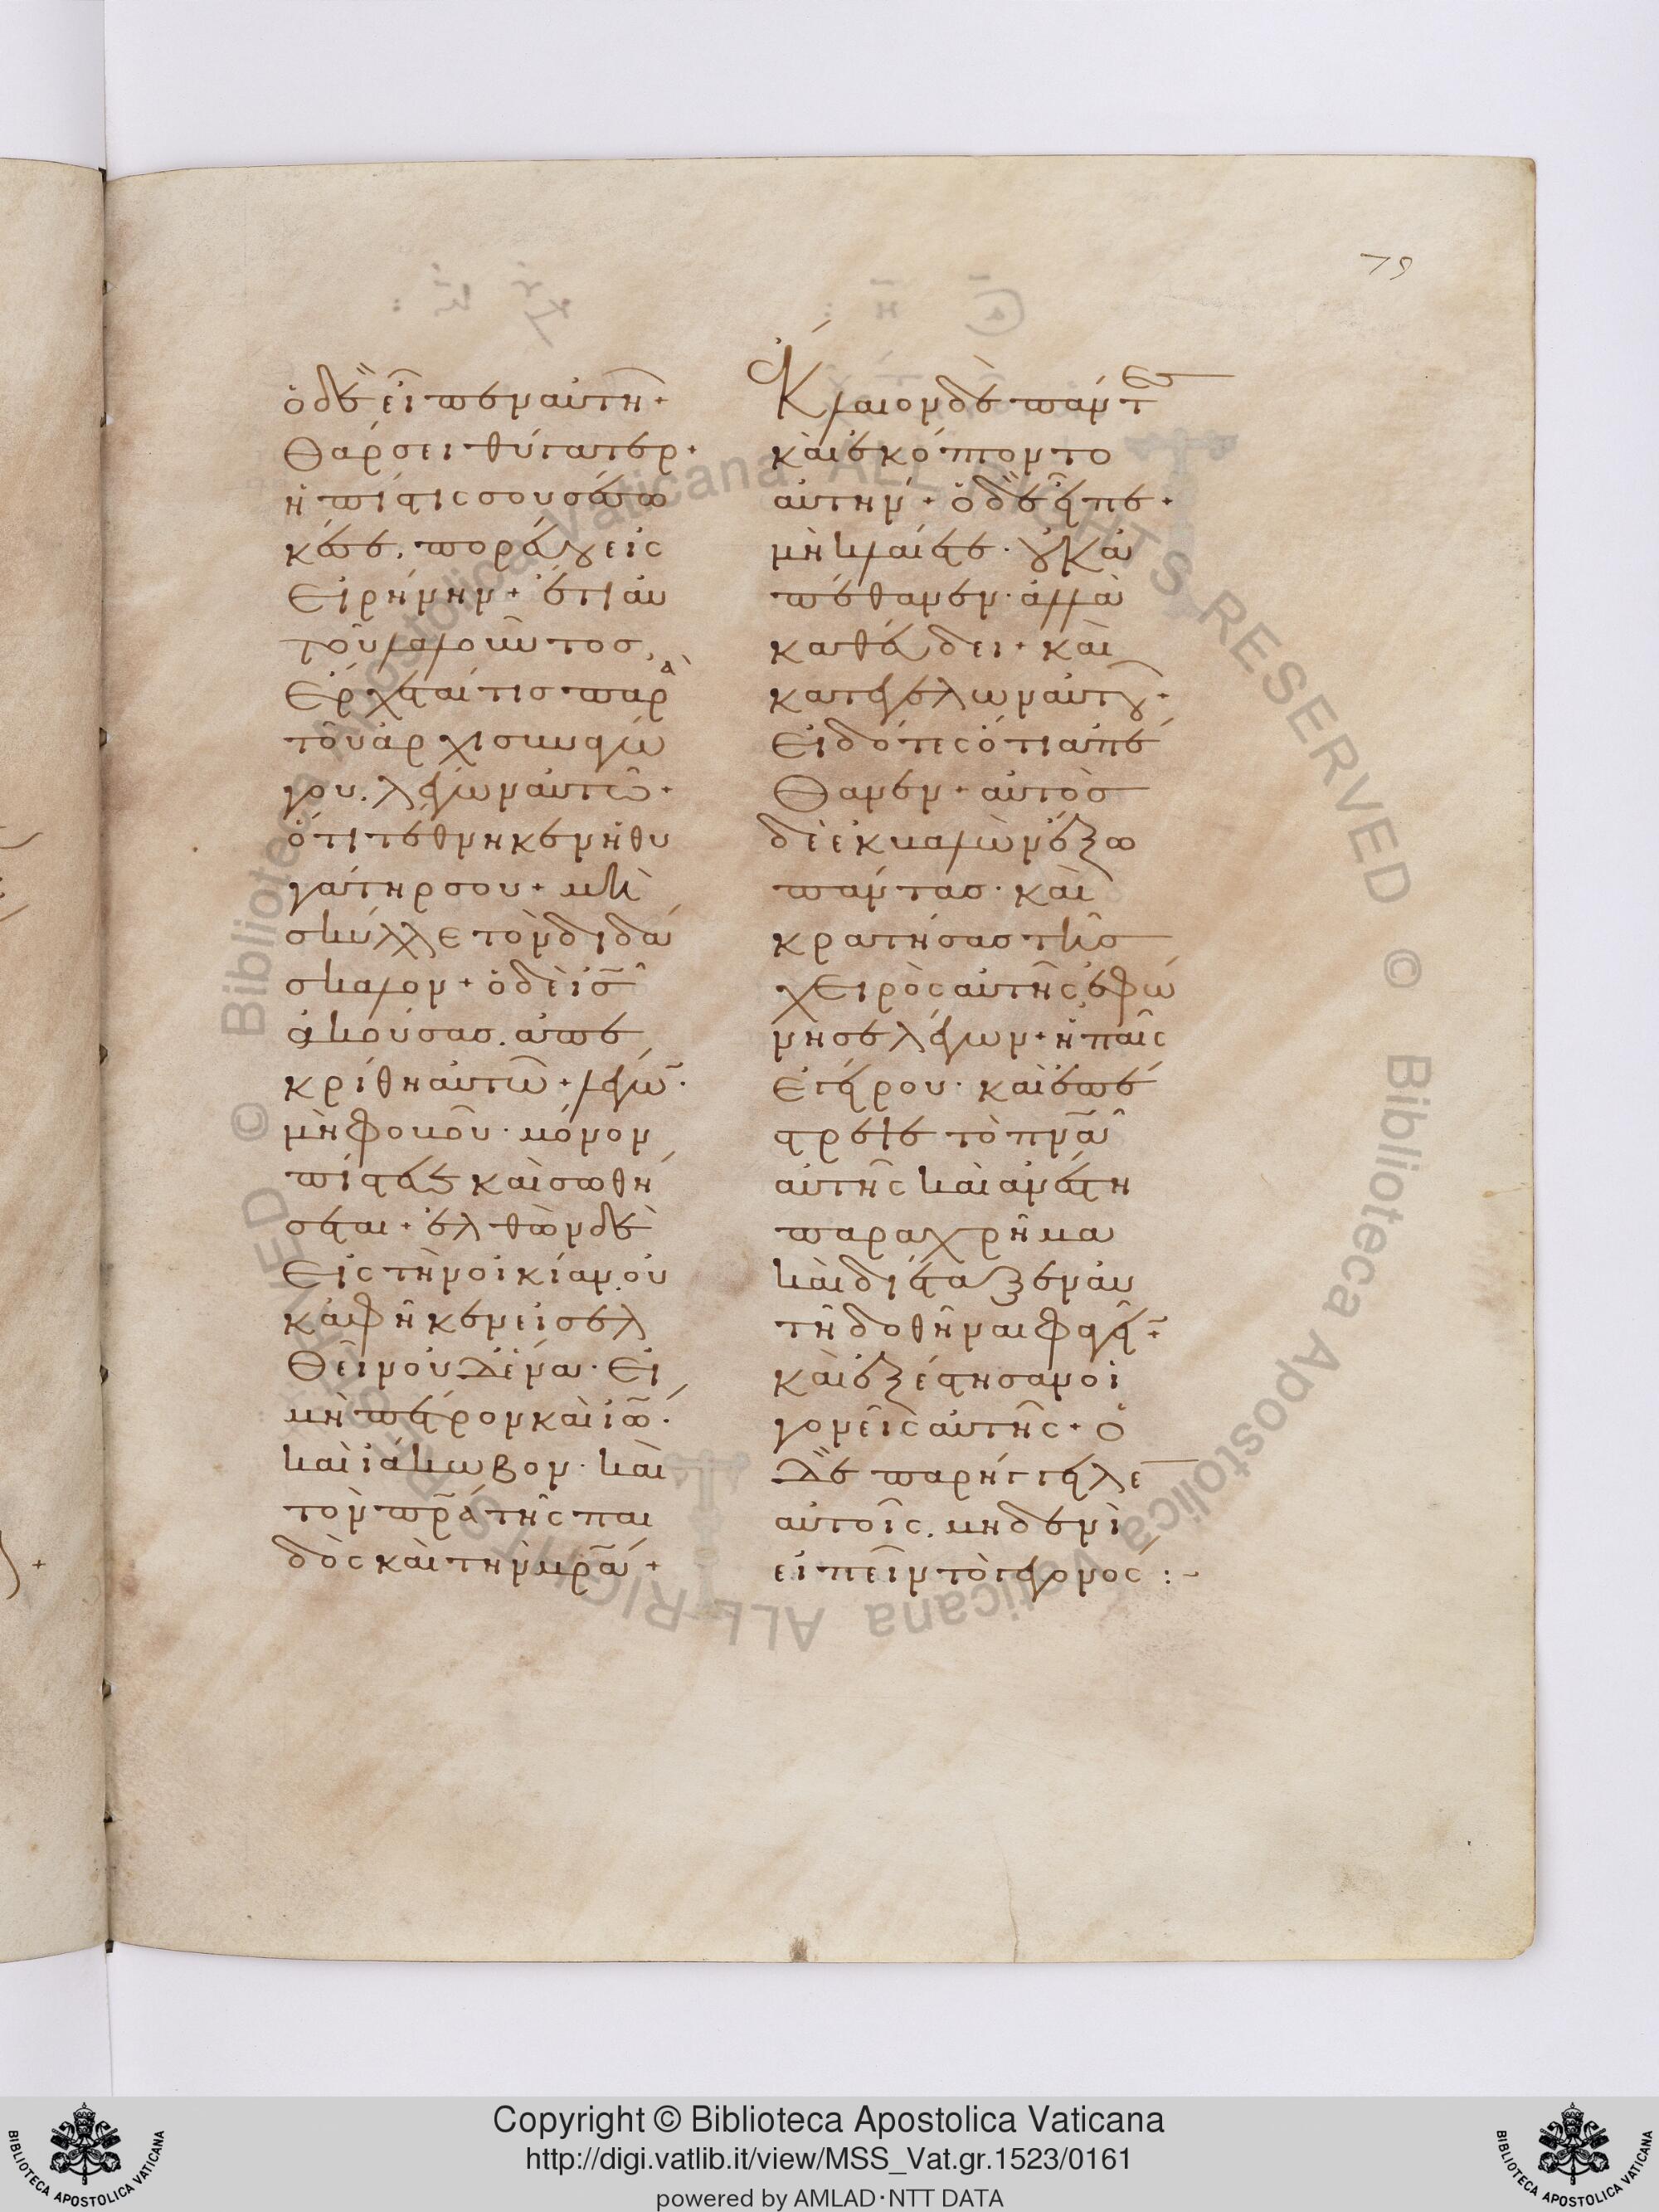 79
ὁ δὲ εἶπεν αὐτῆ·
Θάρσει θύγατερ·
ἡ πίστις σου σέσω
κέ σε. πορεύου εἰς
Εἰρήνην· ἔτι αυ
τοῦ λαλοῦντος,
Ἔρχεταί τις παρὰ
τοῦ ἀρχισυναγώ
γου. λέγων αὐτῶ·
ὅτι τέθνηκεν ἡ θυ
γάτηρ σου· μὴ
σκύλλε τὸν διδά
σκαλον· ὁ δὲ ἰ̅ς̅
ἀκούσας. ἀπε
κρίθη αὐτῶ· λέγω̅·
μὴ φοβοῦ. μόνον
πίστευε καὶ σωθή
σεται· ἐλθὼν δὲ
Εἰς τὴν οἰκίαν. οὐ
κ ἀφῆκεν εἰσελ
Θεῖν οὐδένα. Εἰ
μὴ πέτρον καὶ ἰω̅·
καὶ ἰάκωβον. καὶ
τὸν π̅ρ̅α̅ τῆς παι
δὸς καὶ τὴν μ̅ρ̅α̅·
Ἔκλαιον δὲ πάντες
καὶ ἐκόπτοντο
αὐτήν· ὁ δὲ εἶπε·
μὴ κλαίετε. οὐκ ἀ
πέθανεν. ἀλλὰ
καθεύδει· καὶ
κατεγέλων αὐτοῦ·
Εἰδότες ὅτι ἀπέ
Θανεν· αὐτὸς
δὲ ἐκβαλὼν ἔξω
πάντας. καὶ
κρατήσας τῆς
χειρὸς αὐτῆς ἐφώ
νησε λέγων· ἡ παῖς
Εγείρου. καὶ ἐπέ
στρεψε τὸ π̅ν̅α̅
αὐτῆς καὶ ἀνέστη
παραχρῆμα
καὶ διέταξεν αὐ
τῆ δοθῆναι φαγεῖ̅·
καὶ ἐξέστησαν οἱ
γονεῖς αὐτῆς· ὁ
δὲ παρήγγειλε
αὐτοῖς. μηδενὶ
εἰπεῖν τὸ γεγονός :-
Copyright © Biblioteca Apostolica Vaticana
http://digi.vatlib.it/view/MSS_Vat.gr.1523/0161
powered by AMLAD·NTT DATA
BIBLIOTECA APOSTOLICA VATICANA
BIBLIOTECA APOSTOLICA VATICANA
© Biblioteca Apostolica Vaticana ALL RIGHTS RESERVED
© Biblioteca Apostolica Vaticana ALL RIGHTS RESERVED